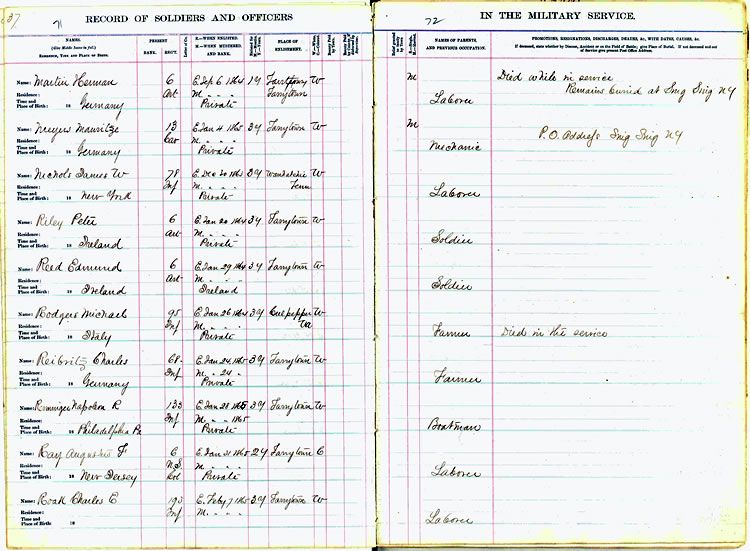 37
71
RECORD OF SOLDIERS AND OFFICERS
NAMES.
(Also Middle Name in full.)
RESIDENCE, TIME AND PLACE OF BIRTH.
PRESENT
RANK. REG'T.
E.—WHEN ENLISTED.
M.—WHEN MUSTERED.
AND RANK.
PLACE OF
ENLISTMENT.
Name: Martin Herman 6 E. Sep 6 1864 1y Tarrytown W
Residence: Art M. " " " Tarrytown
Time and
Place of Birth: 18 Germany Private
Name: Meyers Mauritze 13 E. Jan 4 1865 3y Tarrytown W
Residence: Cav M. " " "
Time and
Place of Birth: 18 Germany Private
Name: Nichols James W 78 E. Dec 20 1863 3y Wauhatchie W
Residence: Inf M. " " " Tenn
Time and
Place of Birth: 18 New York Private
Name: Riley Peter 6 E. Jan 20 1864 3y Tarrytown W
Residence: Art M. " " "
Time and
Place of Birth: 18 Ireland Private
Name: Reed Edmund 6 E. Jan 29 1864 3y Tarrytown W
Residence: Art M. " " "
Time and
Place of Birth: 18 Ireland Ireland
Name: Rodgers Michael 95 E. Jan 26 1864 3y Culpepper W
Residence: Inf M. " " " Va
Time and
Place of Birth: 18 Italy Private
Name: Reibritz Charles 68 E. Jan 24 1865 3y Tarrytown W
Residence: Inf M. " 24 "
Time and
Place of Birth: 18 Germany Private
Name: Reminger Napoleon R 133 E. Jan 28 1865 3y Tarrytown W
Residence: Inf M. " " 1865
Time and
Place of Birth: 18 Philadelphia Pa Private
Name: Ray Augustus F 6 E. Jan 31 1865 2y Tarrytown C
Residence: U.S. M. " " "
Time and
Place of Birth: 18 New Jersey Col Private
Name: Roak Charles E 193 E. Feby 7 1865 3y Tarrytown W
Residence: Inf M. " " "
Time and
Place of Birth: 18
72
IN THE MILITARY SERVICE.
NAMES OF PARENTS,
AND PREVIOUS OCCUPATION.
PROMOTIONS, RESIGNATIONS, DISCHARGES, DEATHS, &c., WITH DATES, CAUSES, &c.
If deceased, state whether by Disease, Accident or on the Field of Battle; give Place of Burial. If not deceased and out
of Service give present Post Office Address.
M Died while in service
Remains buried at Sing Sing NY
Laborer
M
P.O. Address Sing Sing NY
Mechanic
Laborer
Soldier
Soldier
Farmer Died in the service
Farmer
Boatman
Laborer
Laborer